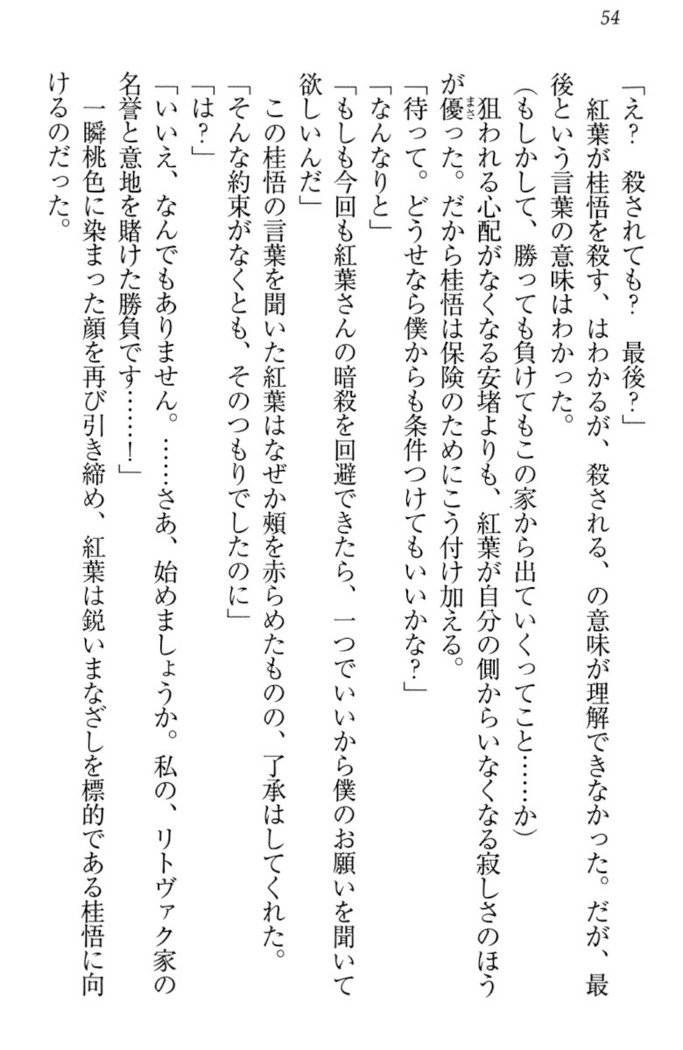 54
「え？　殺されても？　最後？」
　紅葉が桂悟を殺す、はわかるが、殺される、の意味が理解できなかった。だが、最
後という言葉の意味はわかった。
（もしかして、勝っても負けてもこの家から出ていくってこと……か）
　狙われる心配がなくなる安堵よりも、紅葉が自分の側からいなくなる寂しさのほう
が優まさった。だから桂悟は保険のためにこう付け加える。
「待って。どうせなら僕からも条件つけてもいいかな？」
「なんなりと」
「もしも今回も紅葉さんの暗殺を回避できたら、一つでいいから僕のお願いを聞いて
欲しいんだ」
　この桂悟の言葉を聞いた紅葉はなぜか頰を赤らめたものの、了承はしてくれた。
「そんな約束がなくとも、そのつもりでしたのに」
「は？」
「いいえ、なんでもありません。……さあ、始めましょうか。私の、リトヴァク家の
名誉と意地を賭けた勝負です……！」
　一瞬桃色に染まった顔を再び引き締め、紅葉は鋭いまなざしを標的である桂悟に向
けるのだった。